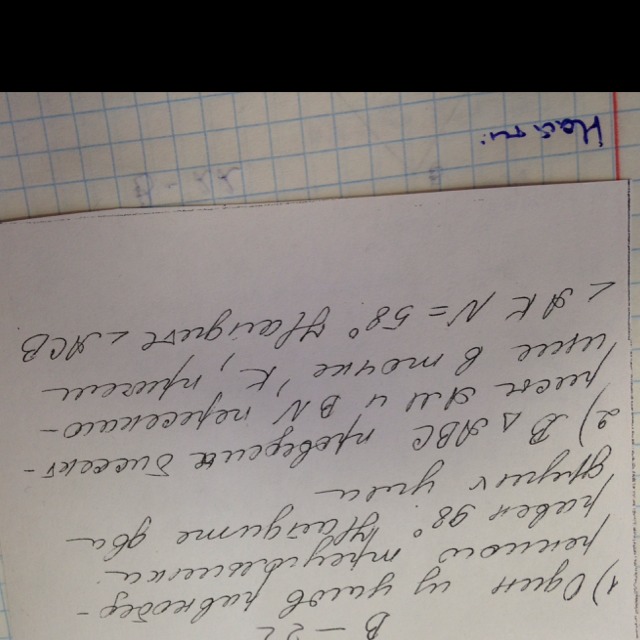 В-22
1) Один из углов равнобед-
ренного треугольника
равен 98°. Найдите два
других угла
2) В △ ABC проведены биссект-
рисы AM и BN, пересекаю-
щиеся в точке K, причем
∠ AKN = 58°. Найдите ∠ ACB
Найти: